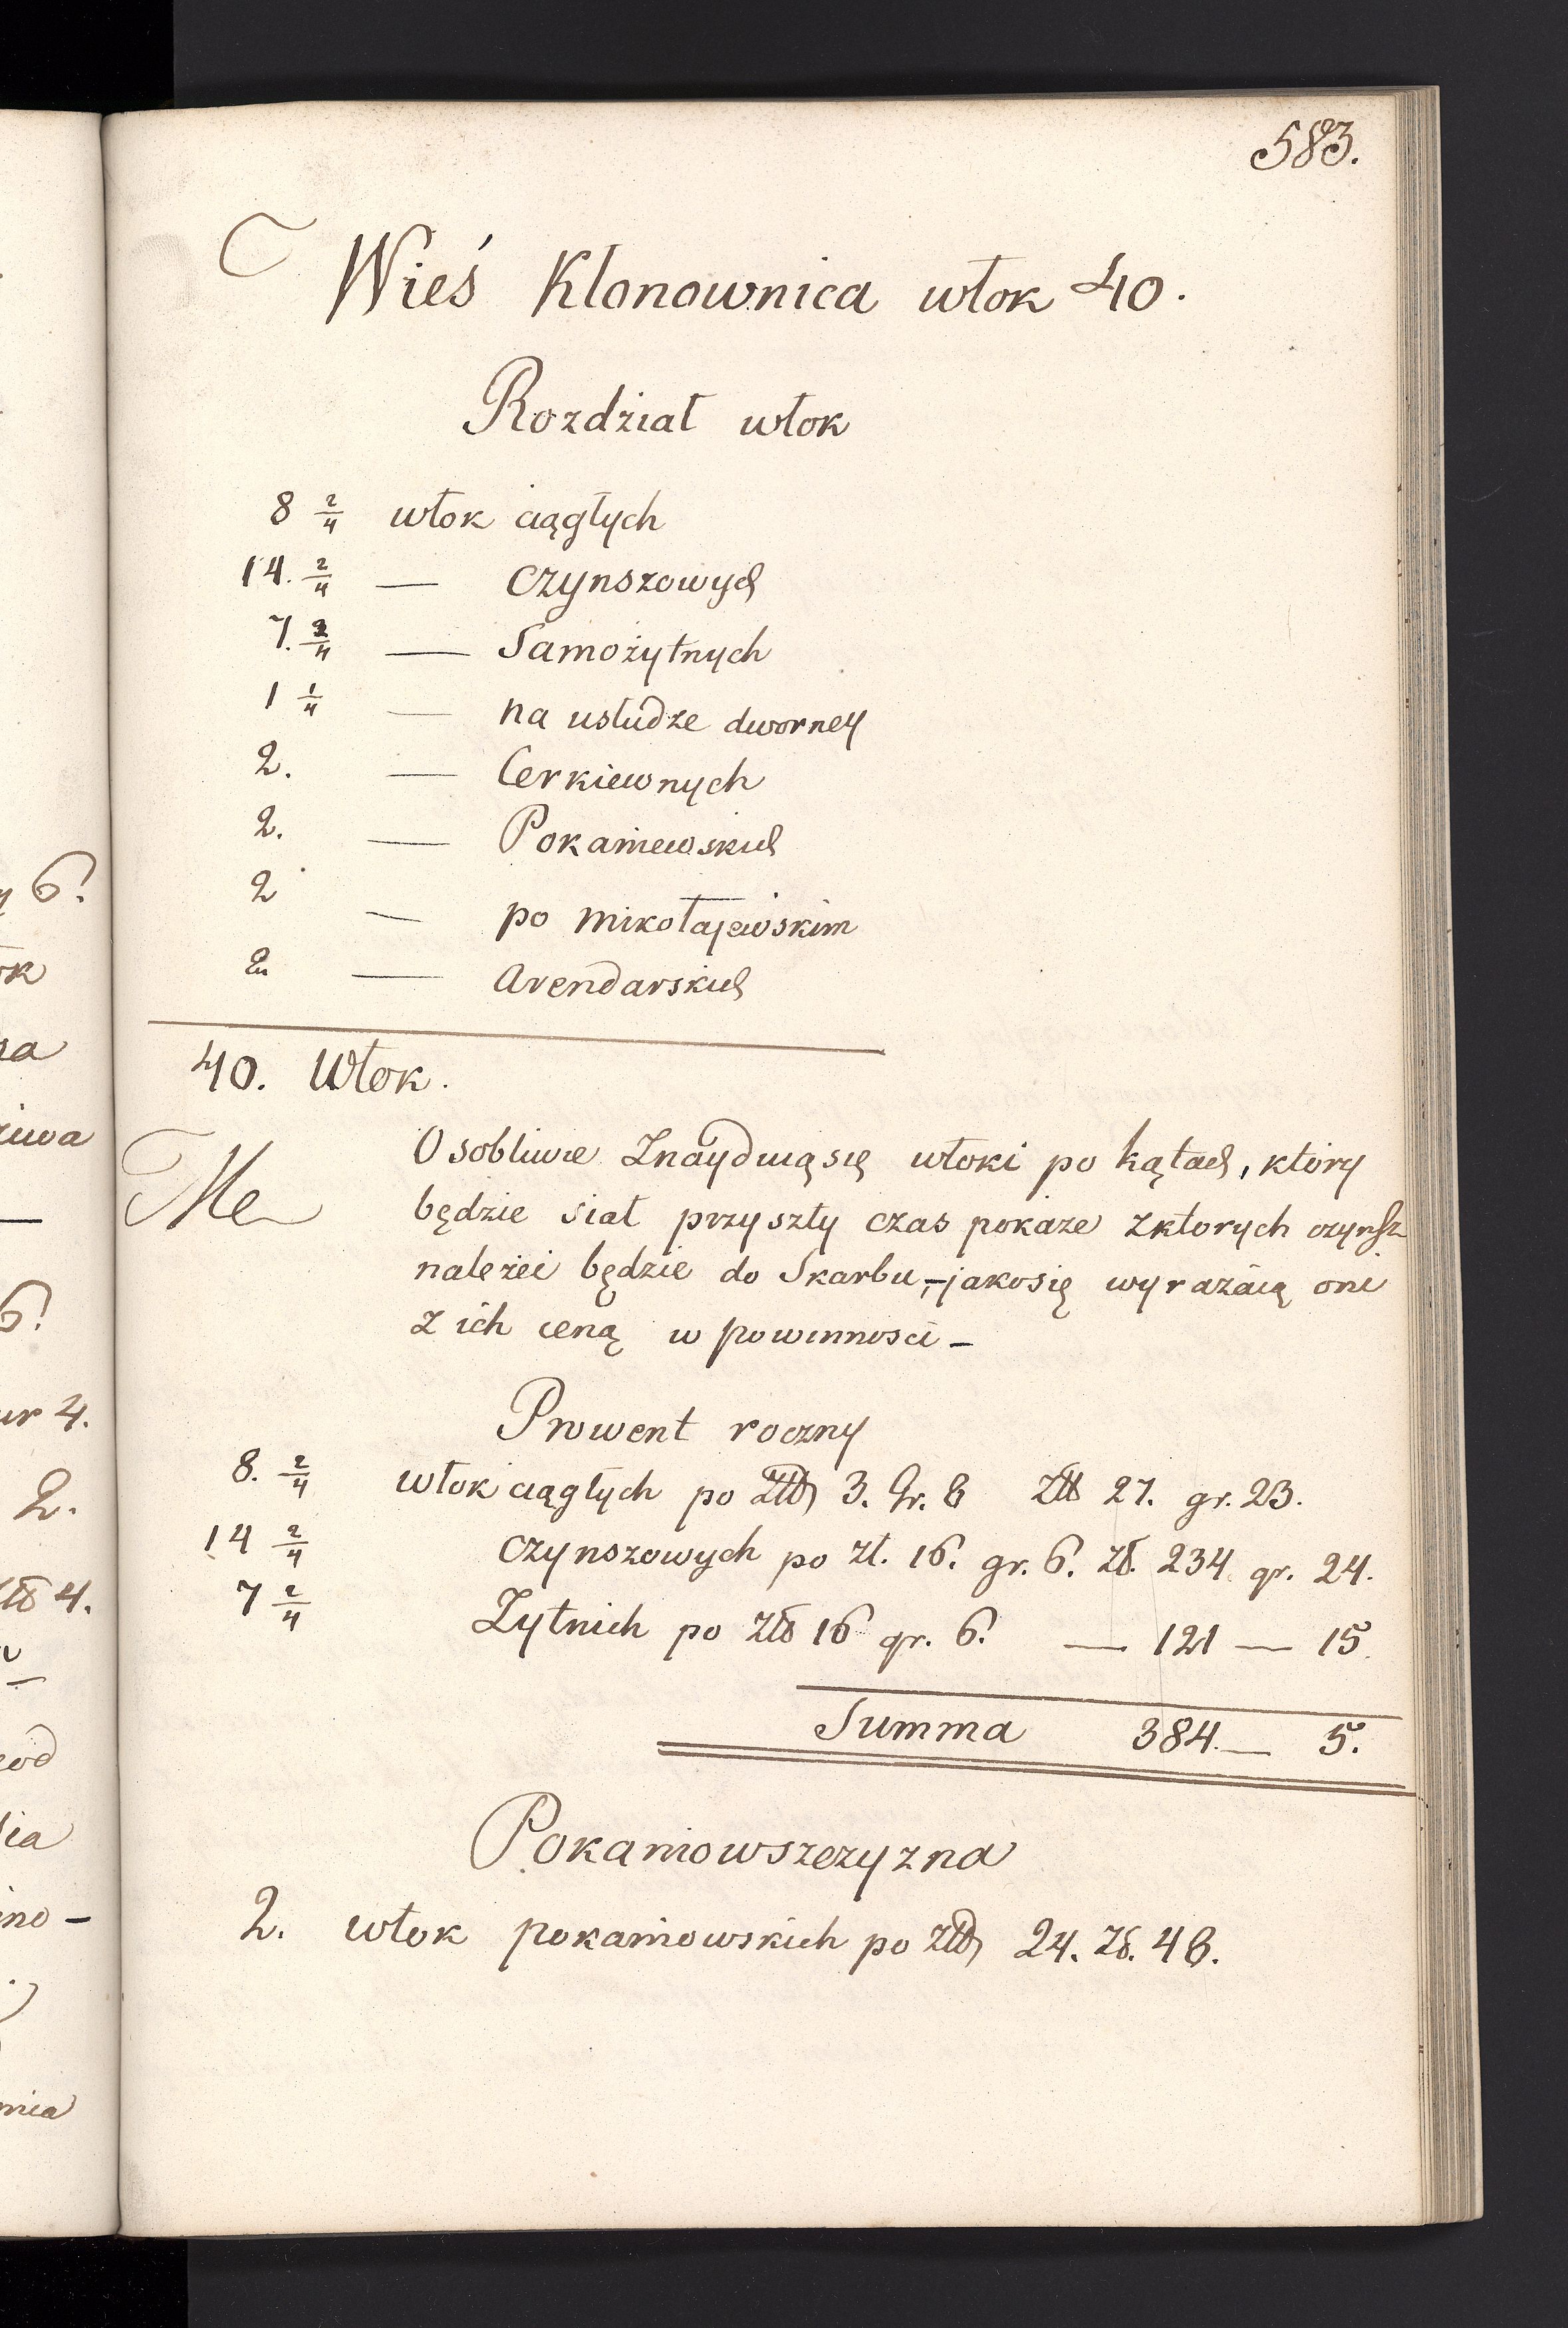 583.
Wieś Klonownica włok 40.
Rozdział włok
8 2/4 włok ciągłych
14. 2/4 — czynszowych
7. 3/4 — Samożytnych
1 1/4 — na usłudze dworney
2. — Cerkiewnych
2. — Pokaniewskich
2 — po Mikołajewskim
2. — Arendarskich
40. Włok.
Osobliwie Znayduią się włoki po kątach, który
Me
będzie siał przyszły czas pokaże z ktorych czynsz
należei będzie do Skarbu, – jako się wyrażaią oni
z ich ceną w powinnosci –
Prowent roczny
8. 2/4 włok ciągłych po Złł 3. Gr. 8 Złł 27. gr. 23.
14 2/4 czynszowych po zł. 16. gr. 6. Zł. 234 gr. 24.
7 2/4 Zytnich po Złł 16 gr. 6. — 121 — 15.
Summa 384. — 5.
Pokaniowszczyzna
2. włok pokaniowskich po złł 24. Zł. 48.
y 6.
ok
na
iwa
6.
ur 4.
2.
złł 4.
zod
sia
ino –
mia